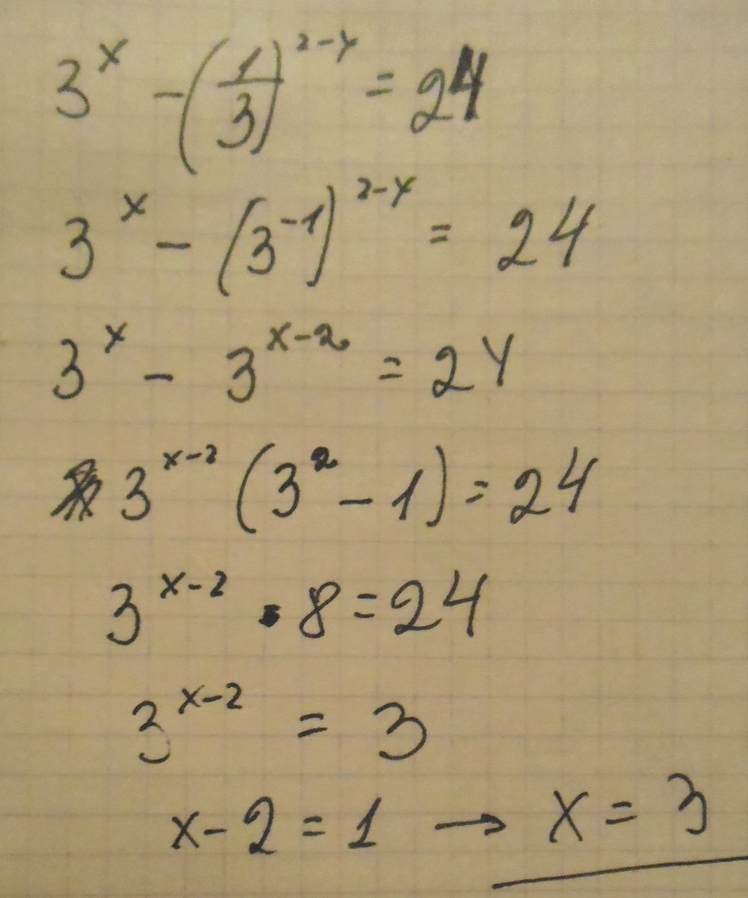 3^x - (1/3)^(2-x) = 24
3^x - (3^-1)^(2-x) = 24
3^x - 3^(x-2) = 24
3^(x-2) (3^2 - 1) = 24
3^(x-2) · 8 = 24
3^(x-2) = 3
x - 2 = 1 → x = 3